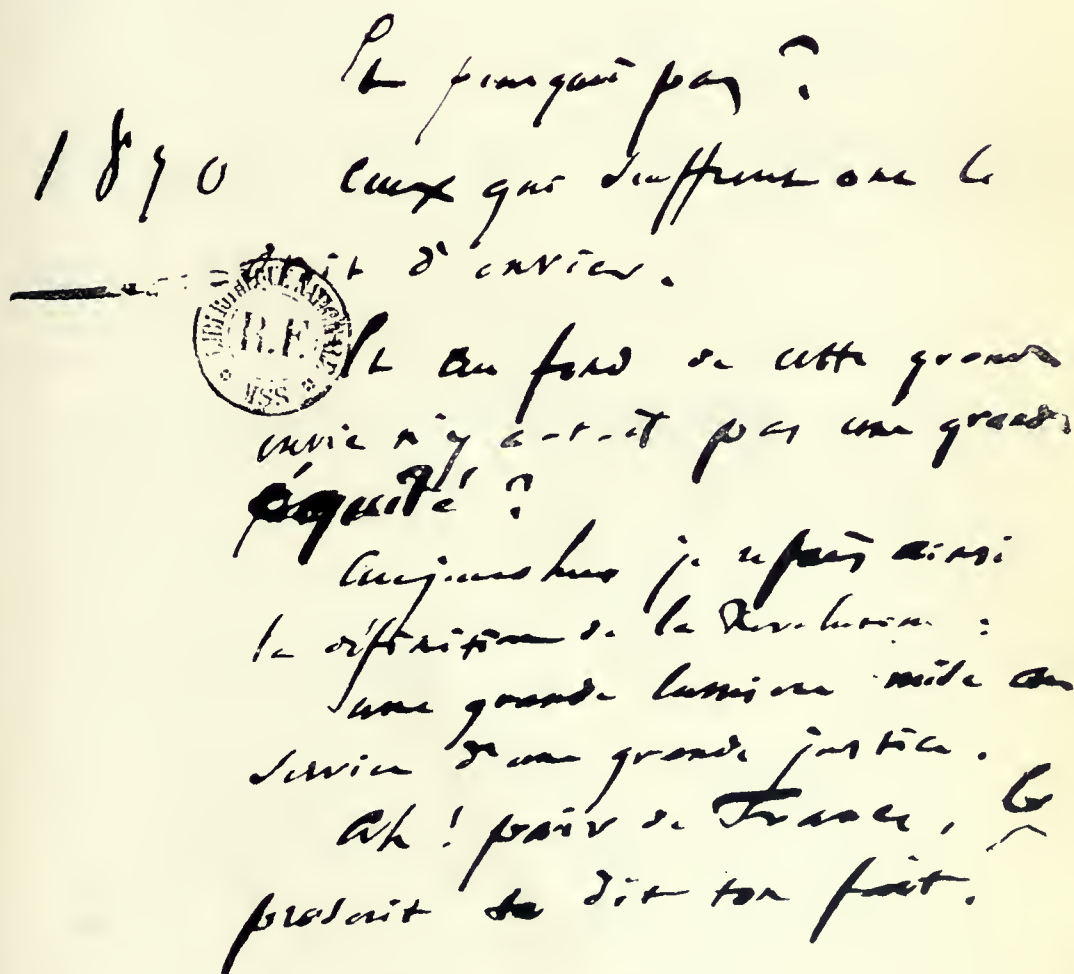 Et pourquoi pas ?
1870 ceux qui souffrent ont le
droit d'envier.
BIBLIOTHÈQUE NATIONALE
R.F.
MSS
Et au fond de cette grande
envie n'y a-t-il pas une grande
équité ?
Aujourd'hui je refais ainsi
la définition de la Révolution :
une grande lumière mise au
service d'une grande justice.
Ah ! pair de France, le
proscrit te dit ton fait.